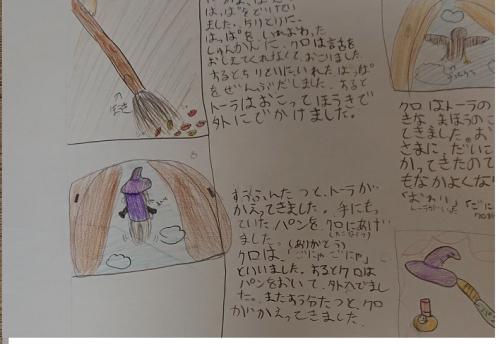 はっぱをとりてい
ました。ちりとりに、
はっぱを いれおわった
しゅんかんに、クロは言舌を
おしえてくれなくて、おこりました
するとちりとりにいれたはっぱ
をぜんぶだしました。すると
トーラはおこってほうきで
外にでかけました。
ほうき
すうふんたつと、トーラが
かえってきました。手にも
ていたパンを、クロにあげ
ました。(ありがとう)
クロは、「ごにゃごにゃ」
といいました。するとクロは
パンをおいて、外へでまし
た。またすう分たつと、クロ
がかえってきました。
クロはトーラの
きな まほうのこ
てきました。お
さまに、だいこ
かってきたので
もなかよくな
「おわり」